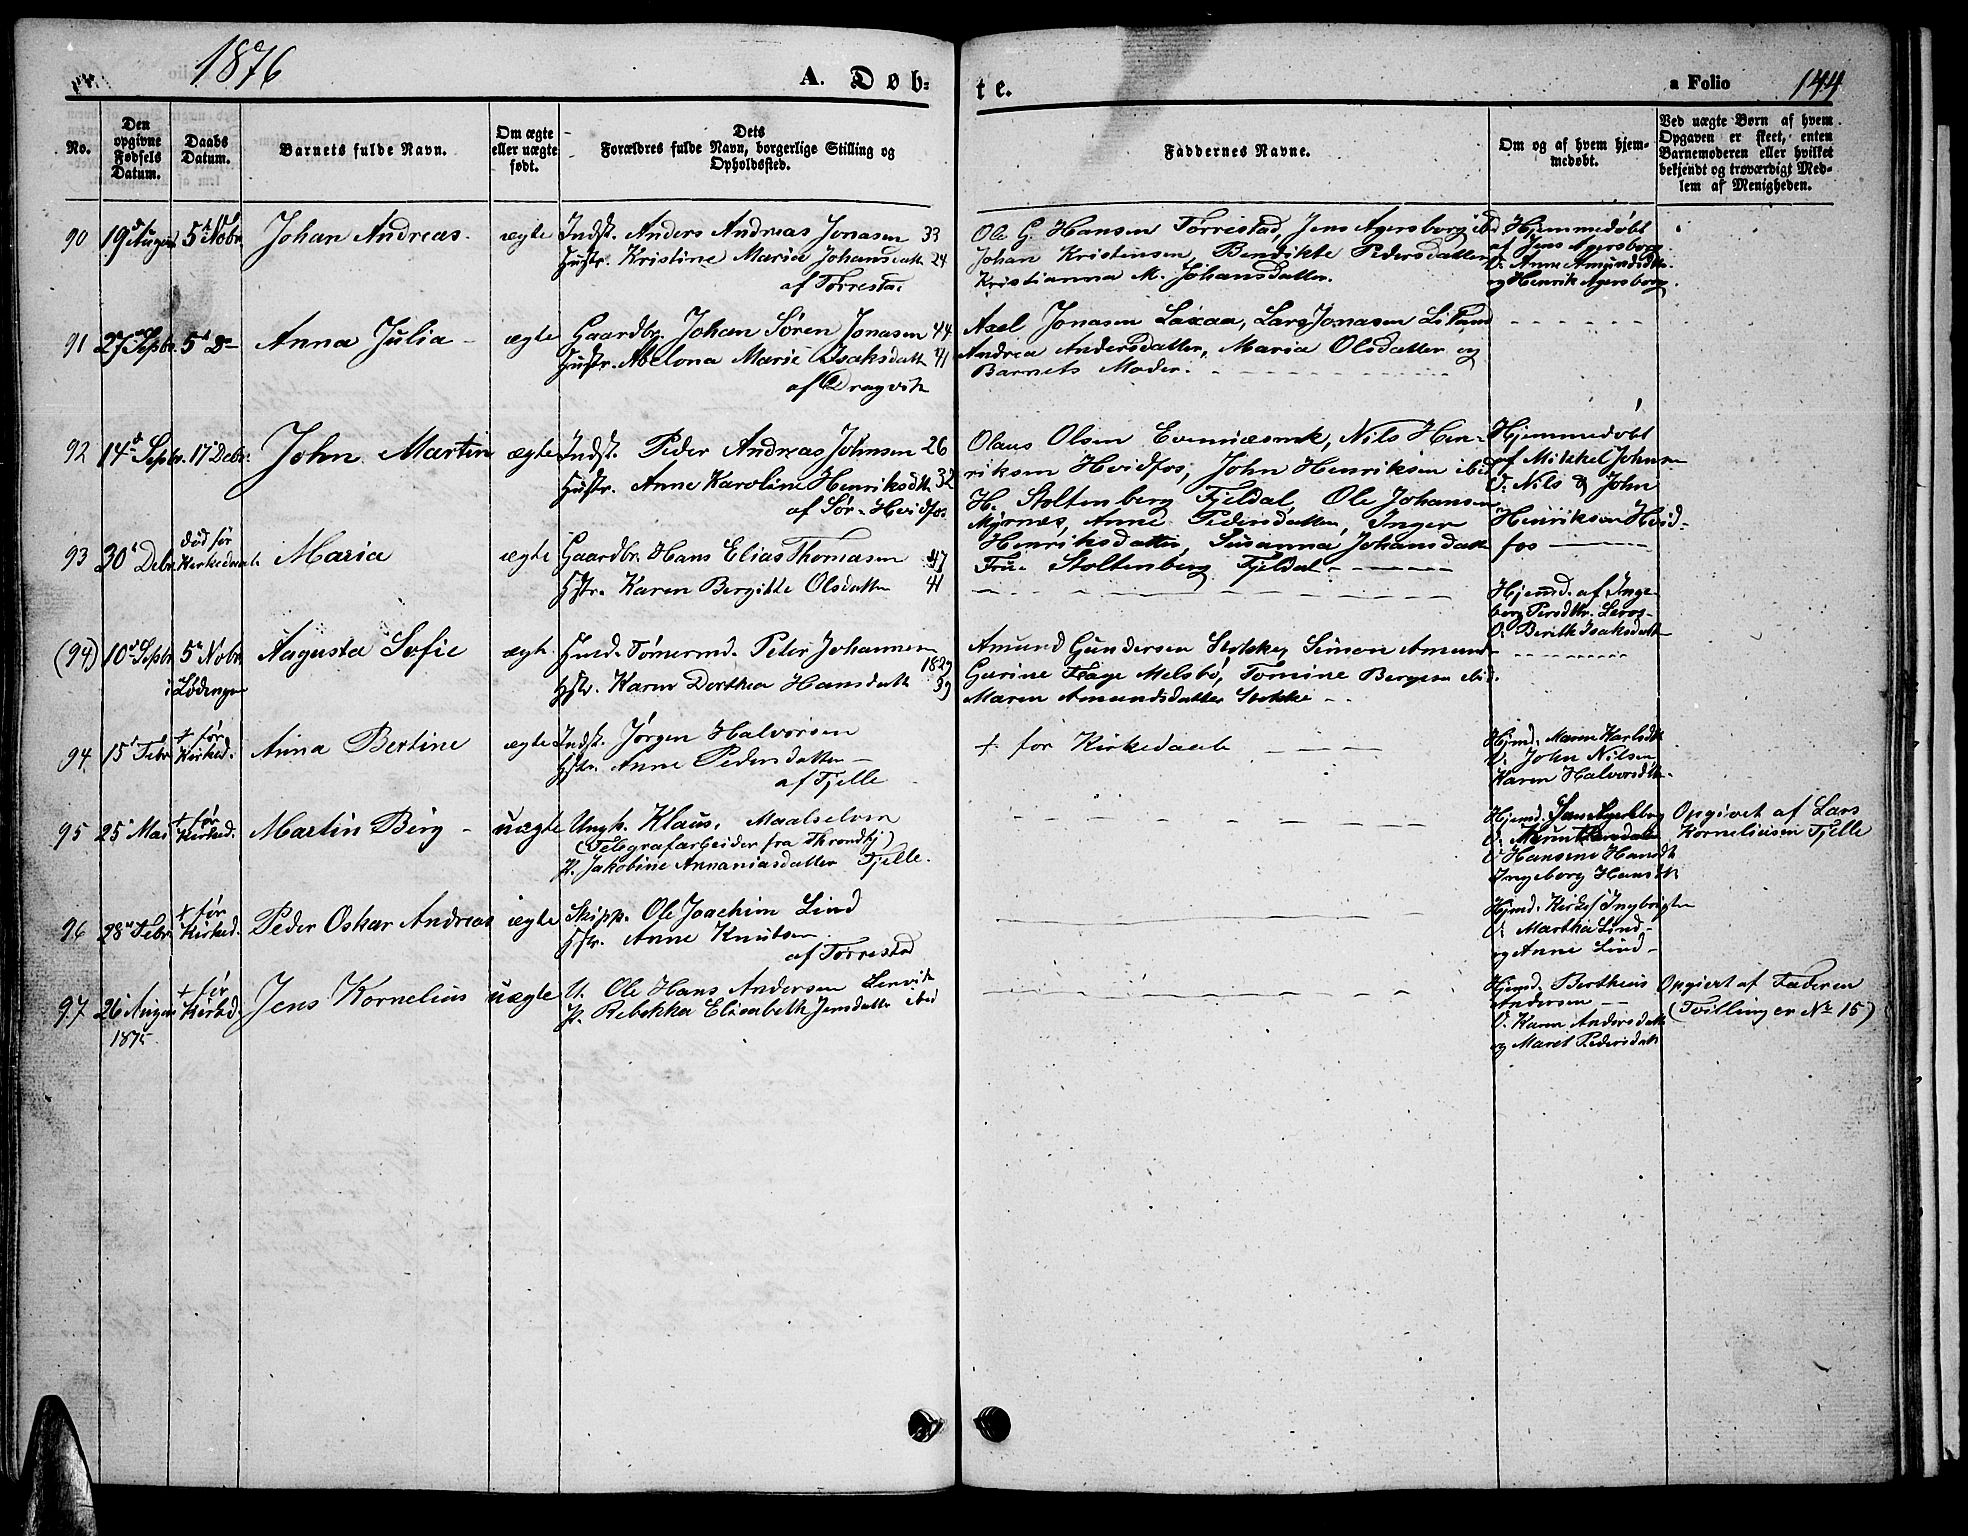 1876
A. Døb-
te.
a Folio 144
No.
Den opgivne Fødsels Datum.
Daabs Datum.
Barnets fulde Navn.
Om ægte eller uægte født.
Dets Forældres fulde Navn, borgerlige Stilling og Opholdssted.
Faddernes Navne.
Om og af hvem hjem-
medøbt.
Ved uægte Børn af hvem
Opgaven er skeet, enten
Barnemoderen eller hvilket
bekjendt og troværdigt Med-
lem af Menigheden.
90 19d August 5d Nobr. Johan Andreas. ægte Indst. Anders Andreas Jonasen 33
Hustr. Kristine Maria Johansdatt. 24
af Torresta.
Ole G. Hansen Torrestad, Jens Agersborg ibd
Johan Kristensen, Bendikte Pedersdatter
Kristianna M. Johansdatter.
Hjemmedøbt
af Jens Agersborg
V. Anne Amundsdtr.
og Henrik Agersborg
91 27 Septbr. 5d Do Anna Julia ægte Gaardbr. Johan Søren Jonasen 44
Hustr. Abelona Marie Isaksdatt. 41
af Dragvik
Axel Jonasen Laxaa, Lars Jonasen
Andrea Andersdatter, Maria Olsdatter og
Barnets Moder.
92 14d Septbr. 17 Debr. John Martin ægte Indst. Peder Andreas Johnsen 26
Hustr. Anne Karoline Henriksdtr. 32
af Sør-Hvidfos
Olaus Olsen Evenæsmk, Nils Hen-
riksen Hvidfos, John Henriksen ibid
H. Stoltenberg Fjeldal, Ole Johansen
Myrnæs, Anne Pedersdatter, Inger
Henriksdatter, Susanna Johansdatt.
Frue Stoltenberg Fjeldal
Hjemmedøbt
af Mikkel Johnsen
V. Nils & John
Henriksen Hvid-
fos
93 30d Debr. død før Kirkedaab Maria ægte Gaardbr. Hans Elias Thomasen 47
Hstr. Karen Bergitte Olsdatter 41
Hjemd. af Inge-
borg Persdtr.
V. Berith Isaksdatt.
(94) 10d Septbr. 5d Nobr. i Lødingen Augusta Sofie ægte Tømermd. Peter Johannesen 1829
Hstr. Karen Dorthea Hansdatt. 39
Amund Gundersen Stokke, Simon Amund-
Gurine Melsbø, Tomine Bergesen ibid.
Maren Amundsdatter Stokke
94. 15d Febr. † før Kirked. Anna Bertine ægte Indst. Jørgen Halvorsen
Hstr. Anne Pedersdatter
af Fjelle
† før Kirkedaab
Hjemd. Maren Karlsdtr.
V. John Nilsen
Karen Halvorsdtr.
95 25d Mai † før Kirked. Martin Berg uægte Ungk. Klaus, Maalselven
(Telegrafarbeider fra Throndhj)
P. Jakobine Annaniasdatter Fjelle.
V. Hansine Hansdt
Ingeborg Hansdt
Opgivet af Lars
Korneliusen Fjelle
96 28d Febr. † før Kirked. Peder Oskar Andreas ægte Skipp. Ole Joachim Lind
Hstr. Anne Knutsen
af Torrestad
Hjemd. Kirkes. Ingbrigtsen
V. Martha Lind
og Anne Lind
97 26d August 1875 † før Kirkd. Jens Kornelius uægte U. Ole Hans Andersen Lenvik
P. Rebekka Elisabeth Jensdatter ibid
Hjemd. Bertheus
Andersen
V. Karen Andersdatt
og Maret Pedersdatt
Opgivet af Faderen
(Tvilling er No 15)